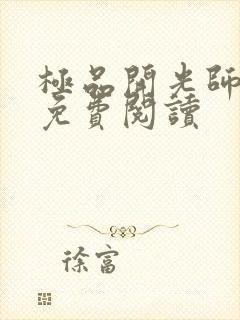 極品開光師
免費閱讀
徐富